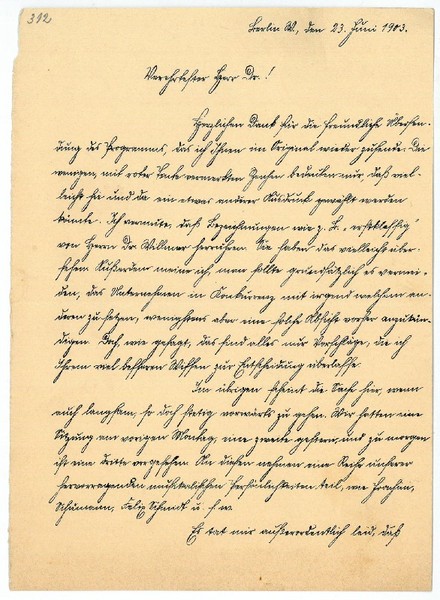 392
Berlin W., den 23. Juni 1903.
Verehrtester Herr Dr.!
Herzlichen Dank für die freundliche Übersen-
dung des Programms, das ich Ihnen im Original wieder zusende. Die
wenigen, mit roter Tinte vermerkten Zeichen bedeuten nur, daß viel-
leicht hie und da ein etwas anderer Ausdruck gewählt werden
könnte. Ich vermute, daß Bezeichnungen wie z. B. „erstklassig"
von Herrn Dr. Willner herrühren. Sie haben das vielleicht über-
sehen. Außerdem meine ich, man sollte grundsätzlich es vermei-
den, das Unternehmen in Konkurrenz mit irgend welchem an-
deren zu setzen, wenigstens aber eine solche Absicht vorher anzukün-
digen. Doch, wie gesagt, das sind alles nur Vorschläge, die ich
Ihrem viel besseren Wissen zur Entscheidung überlasse.
Im übrigen scheint die Sache hier, wenn
auch langsam, so doch stetig vorwärts zu gehen. Wir hatten eine
Sitzung am vorigen Montag, eine zweite gestern, und zu morgen
ist eine dritte vorgesehen. An diesen nahmen eine Reihe unserer
hervorragenden musikalischen Persönlichkeiten teil, wie Joachim,
Schumann, Felix Schmidt u. s. w.
Es tat mir außerordentlich leid, daß